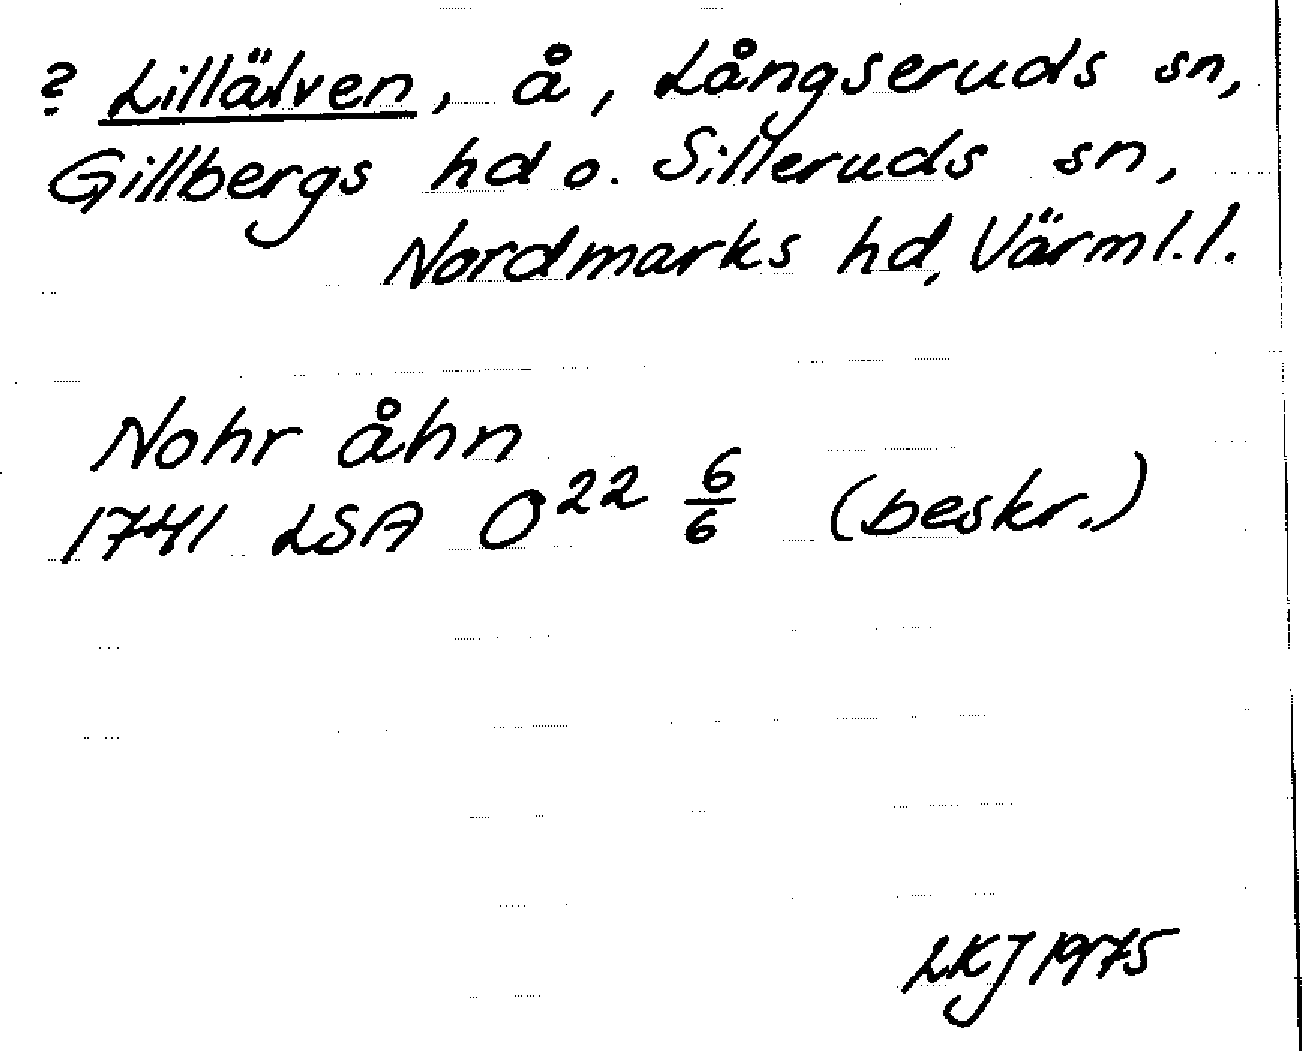 ? Lillälven, å, Långseruds sn,
Gillbergs hd o. Silleruds sn,
Nordmarks hd, Värml. l.
Nohr åhn
1741 LSA O²² 6/6 (beskr.)
LKJ 1975